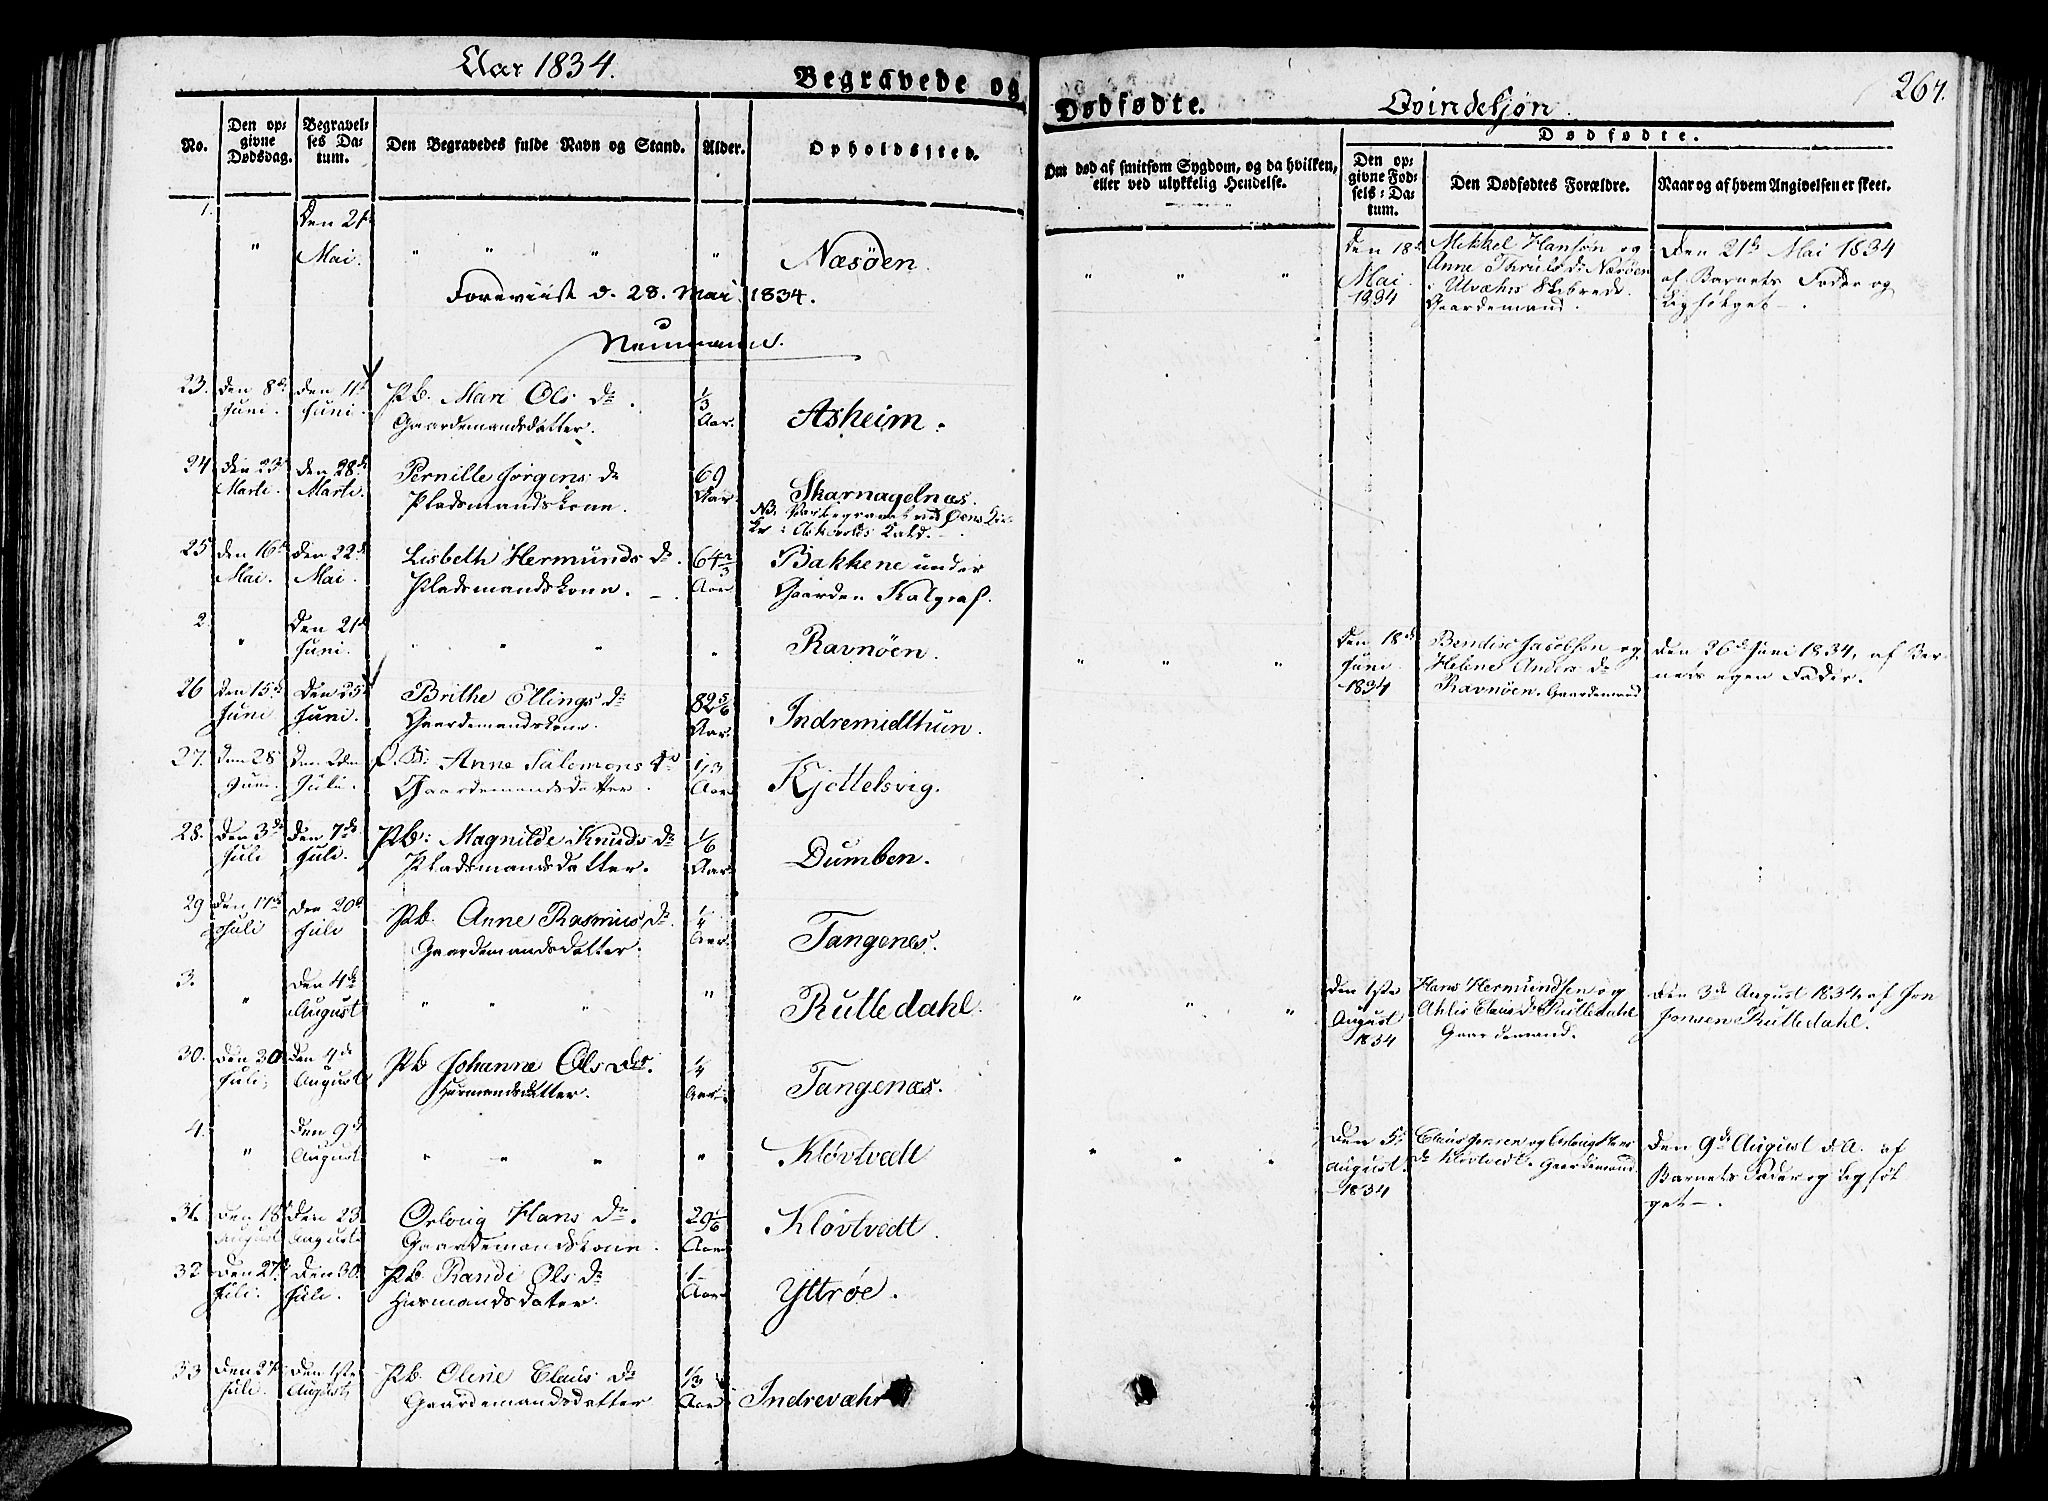 Aar 1834.
Begravede og
Dødfødte.
Qvindekjøn.
267.
No.
Den opgivne Dødsdag.
Begravelses Datum.
Den Begravedes fulde Navn og Stand.
Alder.
Opholdssted.
Om død af smitsom Sygdom, og da hvilken,
eller ved ulykkelig Hendelse.
Dødfødte.
Den opgivne Fødsels-Datum.
Den Dødfødtes Forældre.
Naar og af hvem Angivelsen er skeet.
1. " Den 21de Mai. " " " " Næsöen. " " "
Den 18de Mai 1834
Mikkel Hansön og
Anne Thruls Dr Næsöen
Skibrede
Gaardemand.
Den 21de Mai 1834
af Barnets Fader og
Ligfölget.
Foreviist d. 28. Mai 1834.
Neumann.
23. Den 8de Juni. Den 11te Juni. Pb. Mari Ols Dr. Gaardemandsdatter. 1/3 Aar. Asheim.
24 Den 23de Marti. Den 28de Marti. Pernille Jörgens Dr Pladsmandskone. 69 Aar Skarnagelnæs.
NB. Var begravet ved Öens Kirke
25 Den 16de Mai. Den 22de Mai. Lisbeth Hermunds Dr. Pladsmandskone. 64 2/3 Aar Bakkene under
Gaarden Kalgraf.
2. " Den 21de Juni. " " " " Ravnöen. " " "
Den 18de Juni 1834
Bendix Jacobsön og
Helene Anders Dr
Ravnöen. Gaardemand
Den 26de Juni 1834, af Bernets egen Fader.
26 Den 15de Juni Den 25de Juni. Brithe Ellings Dr Gaardemandskone. 82 5/6 Aar. Indremidthun.
27. Den 28 Juni. Den 2den Juli. P. B. Anne Salemons Dr Gaardemandsdatter. 1/3 Aar Kjettelsvig.
28. Den 3de Juli Den 7de Juli. Pb: Magnilde Knuds Dr Pladsmandsdatter. 1/6 Aar. Dumben.
29 Den 17de Juli Den 20de Juli Pb. Anne Rasmus Dr. Gaardemandsdatter. 1/4 Aar. Tangenes.
3. " Den 4de August " " " " Rutledahl. " " "
Den 1ste August 1834
Hans Hermundsen og
Ahlis Claus Dr Rutledahl
Gaardemand.
Den 3de August 1834, af Jon
Jonsen Rutledahl.
30. Den 30 Juli, Den 4de August Pb Johanne Ols Dr. Husmandsdatter. 1/4 Aar. Tangenæs.
4. " Den 9de August " " " " Klövtvedt " " "
Den 5te August. 1834
Claus Jensen og Osloug Hans
Dr Klövtvedt. Gaardemand.
Den 9de August d. A. af
Barnets Fader og Ligfölget.
31. Den 18de August Den 23 August. Osloug Hans Dr. Gaardemandskone. 29 1/6 Aar Klövtvedt.
32 Den 27de Juli. Den 30. Juli. Pb. Randi Ols Dr Husmandsdater. 1 Aar Yttröe.
33 Den 27 Juli. Den 1ste August, Pb. Oline Claus Dr Gaardemandsdatter 1/3 Aar Indrevæhr